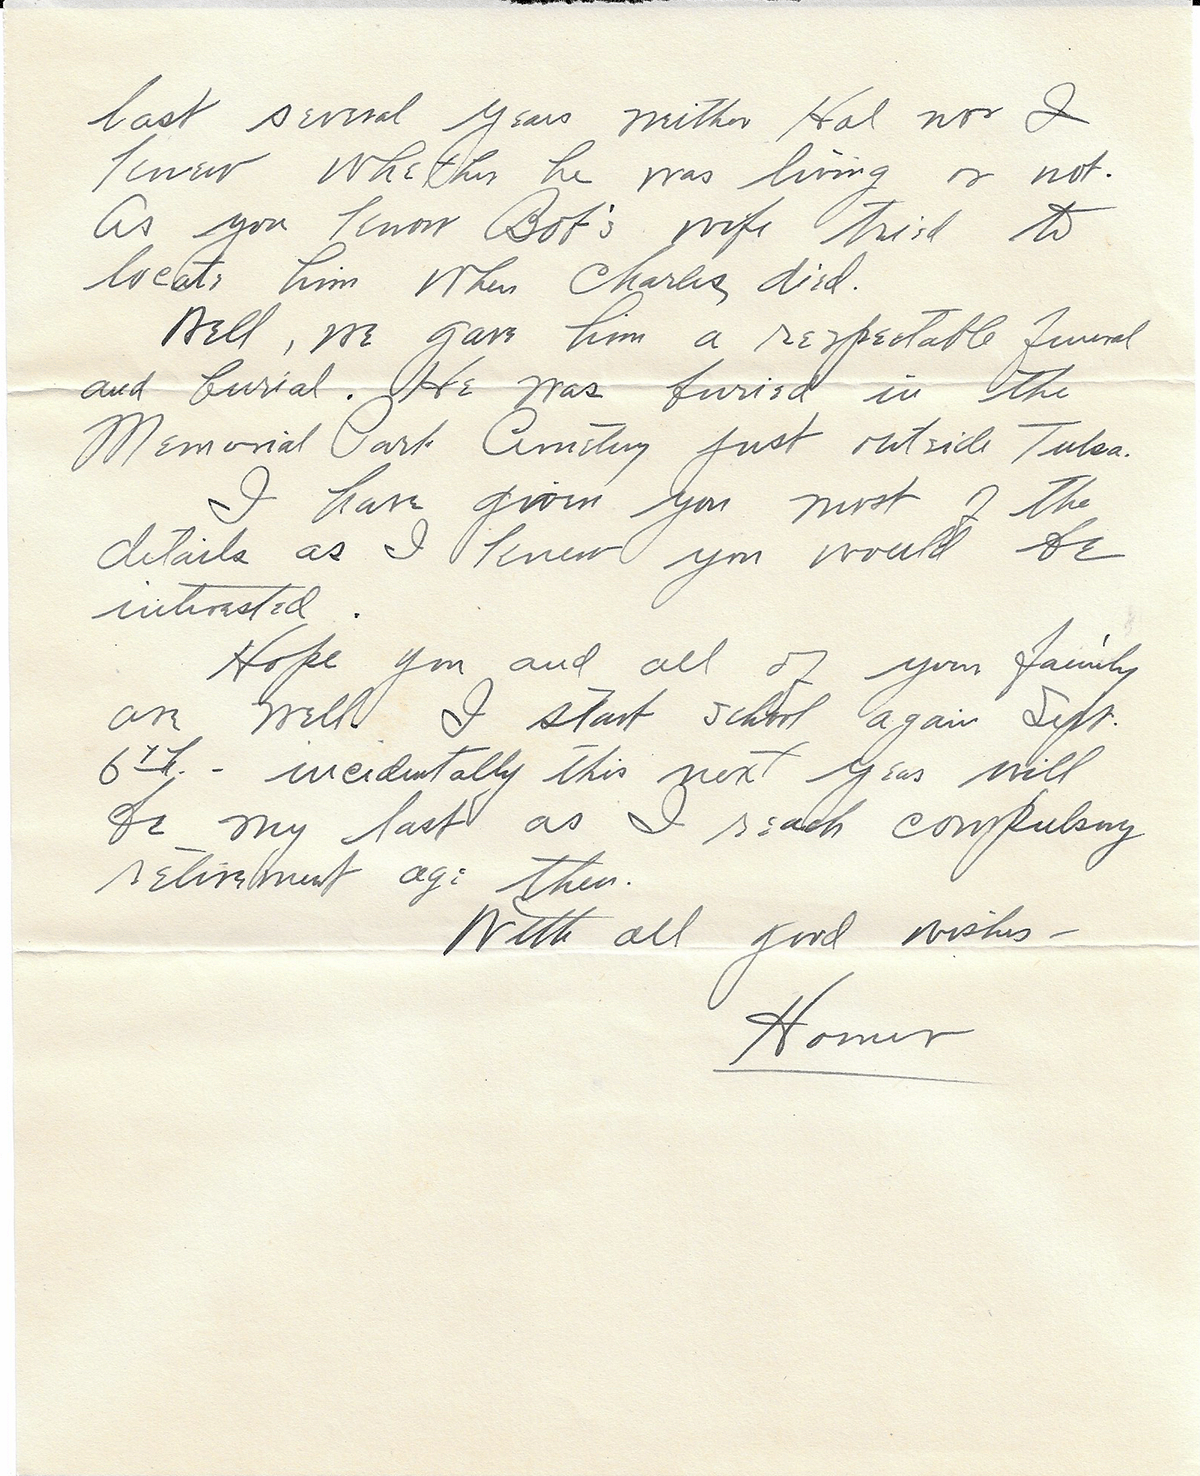 last several years neither Hal nor I
knew whether he was living or not.
As you know Bob's wife tried to
locate him when Charles died.
Well, we gave him a respectable funeral
and burial. He was buried in the
Memorial Park Cemetery just outside Tulsa.
I have given you most of the
details as I knew you would be
interested.
Hope you and all of your family
are well. I start school again Sept.
6th. - incidentally this next year will
be my last as I reach compulsory
retirement age then.
With all good wishes -
Homer